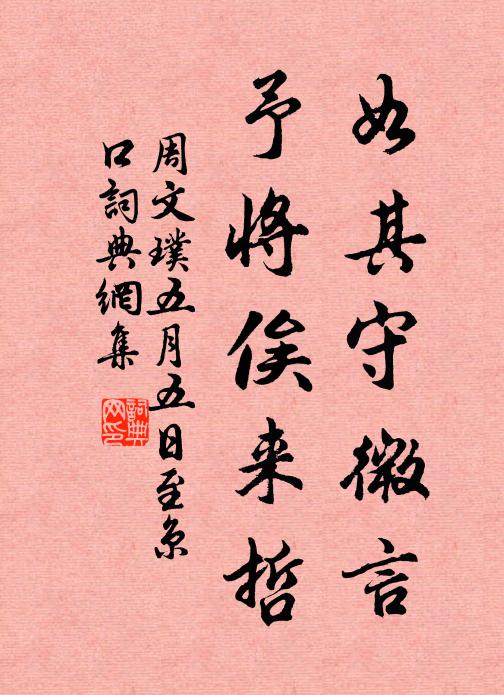 如其守微言
予將俟来哲
周文璞五月五日至京
口詞典網集
詞典網印